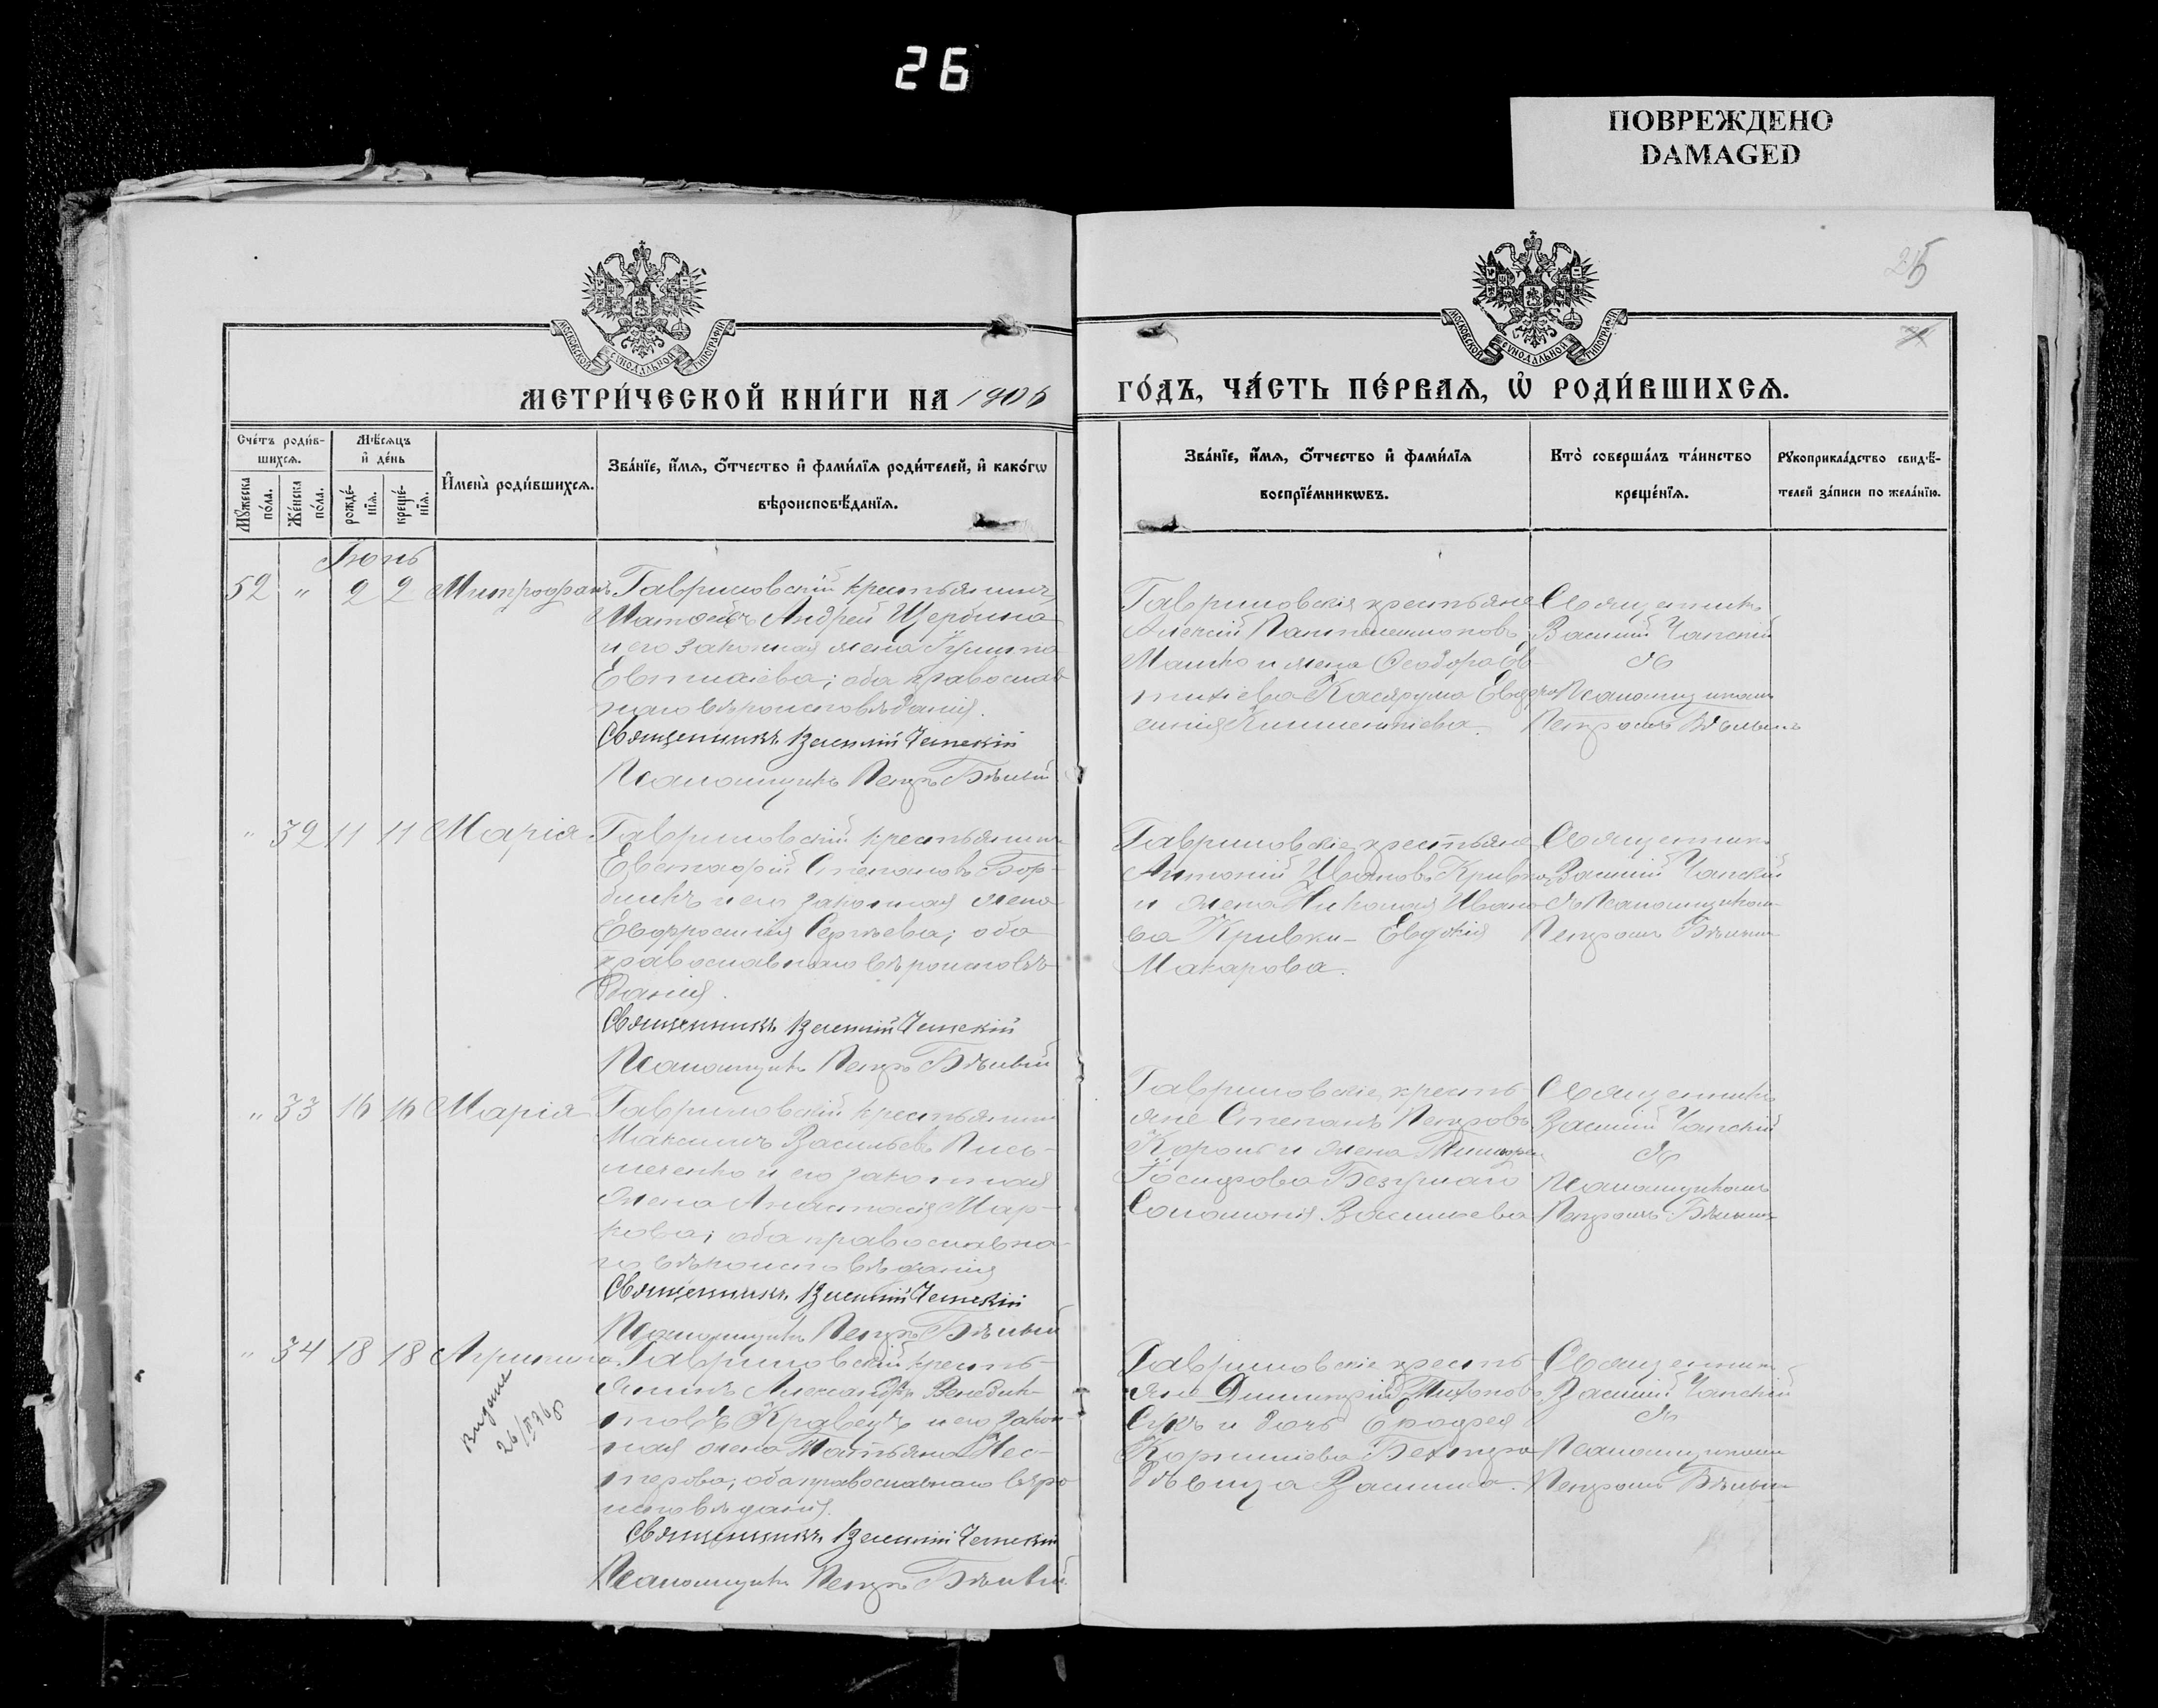 26
ПОВРЕЖДЕНО
DAMAGED
25
МОСКОВСКОЙ СѴНОДАЛЬНОЙ ТИПОГРАФІИ
МОСКОВСКОЙ СѴНОДАЛЬНОЙ ТИПОГРАФІИ
МЕТРИ́ЧЕСКОЙ КНИ́ГИ НА 1906
ГО́ДЪ, ЧА́СТЬ ПЕ́РВАѦ, Ѽ РОДИ́ВШИХСѦ.
Сче́тъ роди́вшихсѧ.
Мꙋ́жеска по́ла.
Же́нска по́ла.
Мѣ́сѧцъ и҆ де́нь
рожде́нїѧ.
креще́нїѧ.
И҆мена̀ роди́вшихсѧ.
Зва́нїе, и҆́мѧ, ѻ҆́тчество и҆ фами́лїѧ роди́телей, и҆ како́гѡ
вѣроисповѣ́данїѧ.
Зва́нїе, и҆́мѧ, ѻ҆́тчество и҆ фами́лїѧ
воспрїе́мникѡвъ.
Кто̀ соверша́лъ та́инство
креще́нїѧ.
Рꙋкоприкла́дство свидѣ́-
телей за́писи по жела́нїю.
Іюнь
52 " 2 2 Митрофанъ
Гавриловскій крестьянинъ
Андрей Щербина
и его законная жена
оба православ
наго вѣроисповѣданія.
Священникъ Василій Чапскій
Псаломщикъ Петръ Бѣлый
Гавриловскіе крестьяне
Алексій Пантелеимоновъ
Машко и жена Ѳеодора
Священникъ
Василій Чапскій
съ
Псаломщикомъ
Петромъ Бѣлымъ
" 32 11 11 Марія
Гавриловскій крестьянинъ
Евстафій Степановъ Бор-
и его законная жена
Евфросинія Сергѣева; оба
православнаго вѣроисповѣ-
данія.
Священникъ Василій Чапскій
Псаломщикъ Петръ Бѣлый
Гавриловскіе крестьяне
Антоній Ивановъ Кривко
и жена Николая Ивано-
ва Кривки - Евдокія
Макарова.
Священникъ
Василій Чапскій
съ Псаломщикомъ
Петромъ Бѣлымъ
" 33 16 16 Марія
Гавриловскій крестьянинъ
Максимъ Васильевъ Пись-
менско и его законная
жена Анастасія Мар-
кова; оба православна-
го вѣроисповѣданія
Священникъ Василій Чапскій
Псаломщикъ Петръ Бѣлый
Гавриловскіе кресть-
яне Степанъ Петровъ
Король и жена
Іосифова
Соломонія Васильева
Священникъ
Василій Чапскій
съ
Псаломщикомъ
Петромъ Бѣлымъ
" 34 18 18 Агрипина
26/II 36
Гавриловскій кресть-
янинъ Александръ Венедик-
товъ Кравецъ и его закон-
ная жена Татьяна Нес-
терова; оба православнаго вѣро
исповѣданія.
Священникъ Василій Чапскій
Псаломщикъ Петръ Бѣлый
Гавриловскіе кресть-
яне Димитрій Тихоновъ
и дочь
Корнилиева
дѣвица
Священникъ
Василій Чапскій
съ
Псаломщикомъ
Петромъ Бѣлымъ